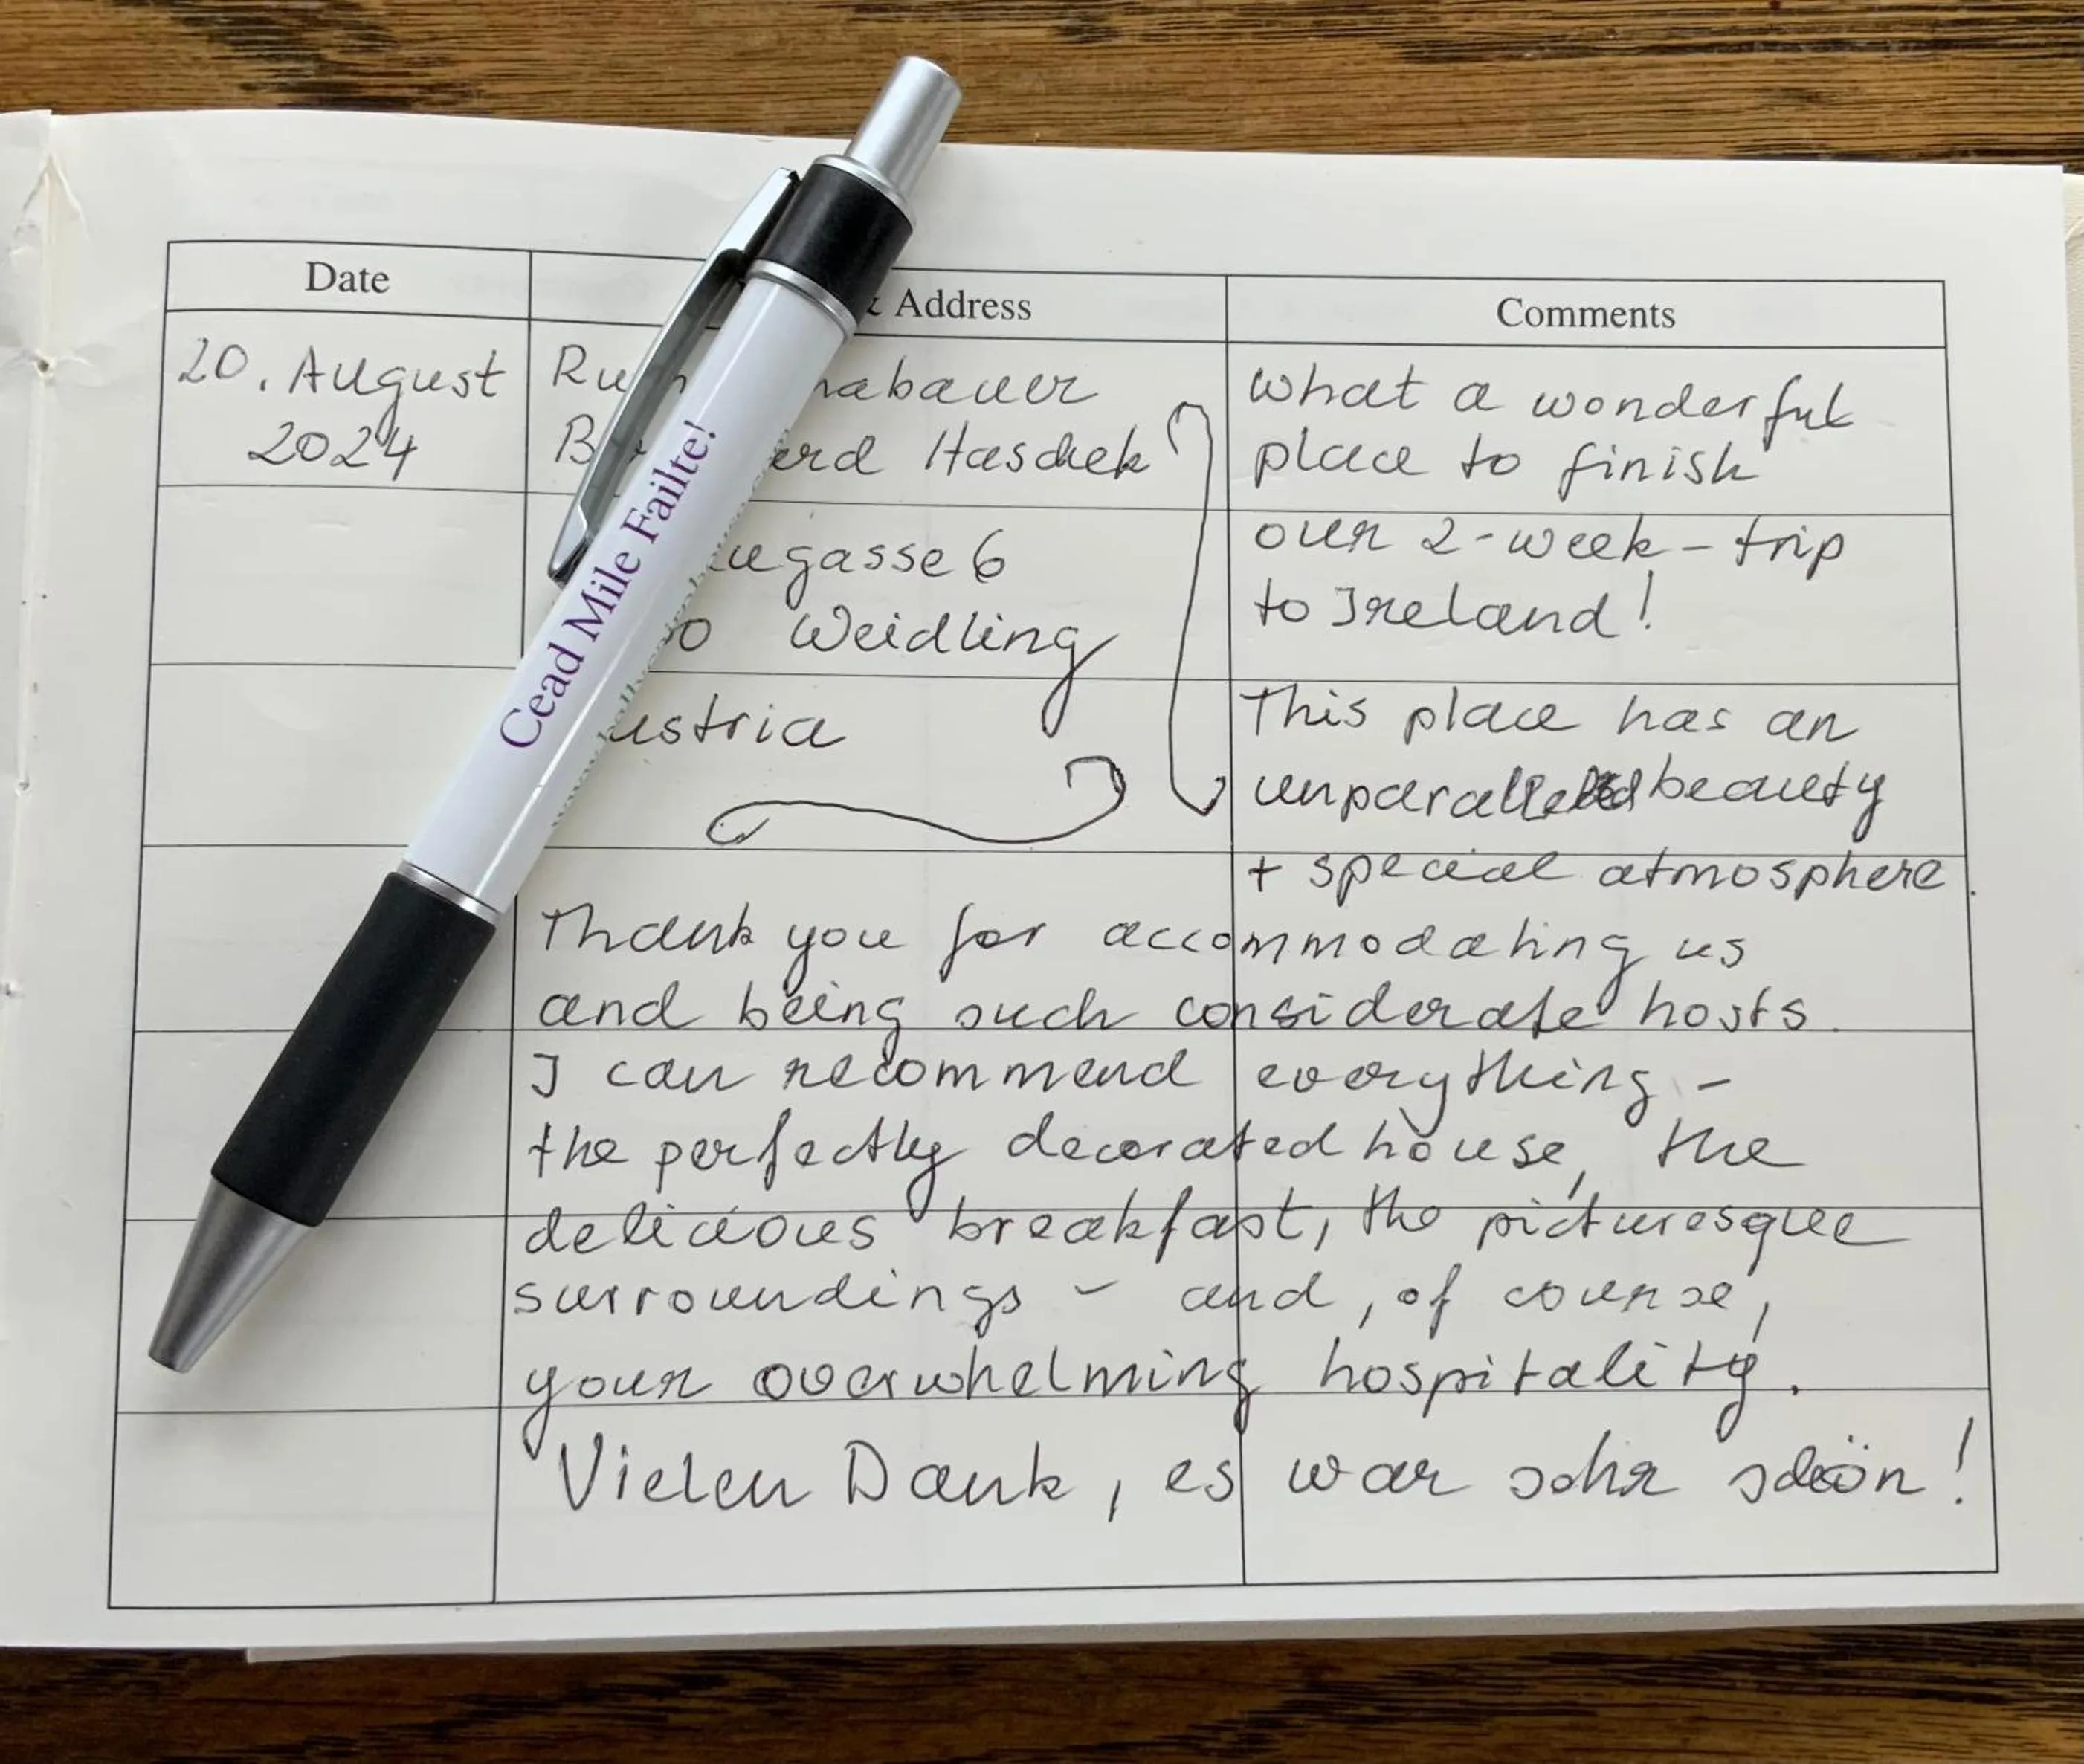 Date
Address
Comments
20. August
2024
Haschek
6
Weidling
What a wonderful
place to finish
our 2-week-trip
to Ireland!
This place has an
unparalleled beauty
+ special atmosphere.
Thank you for accommodating us
and being such considerate hosts.
I can recommend everything -
the perfectly decorated house, the
delicious breakfast, the picturesque
surroundings - and, of course,
your overwhelming hospitality.
Vielen Dank, es war sehr schön!
Cead Mile Failte!